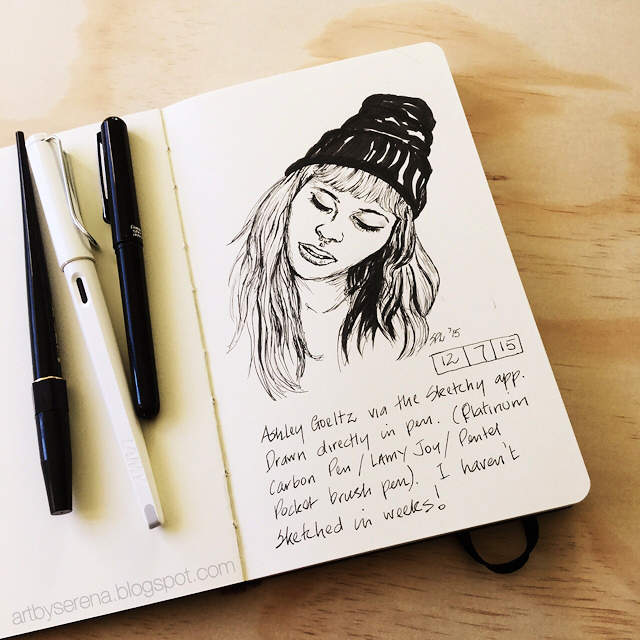 SPW '15
12 7 15
Ashley Goeltz via the Sketchy app.
Drawn directly in pen. (Platinum
Carbon Pen / LAMY Joy / Pentel
Pocket brush pen). I haven't
sketched in weeks!
LAMY
artbyserena.blogspot.com